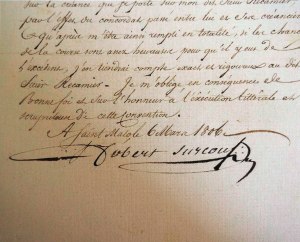 sur la créance que je porte sur mon dit Sieur Récamier,
par l'effet du concordat passé entre lui et ses créanciers
qu'après m'être ainsi rempli en totalité, si les chances
de la course sont aux heureuses pour qu'il y eut de
l'excédent, j'en tiendrai compte exact et rigoureux au dit
Sieur Récamier. Je m'oblige en conséquence de
Bonne foi et sur l'honneur à l'exécution littérale et
scrupuleuse de cette convention.
A Saint Malo le 6 Mars 1806.
Robert Surcouf